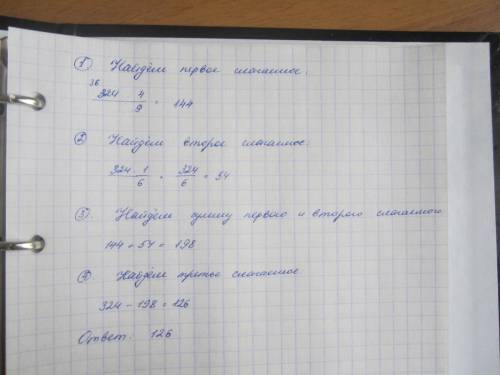 1) Найдём первое слагаемое:
36
324 · 4 / 9 = 144
2) Найдём второе слагаемое:
324 · 1 / 6 = 324 / 6 = 54
3). Найдём сумму первого и второго слагаемого
144 + 54 = 198
4). Найдём третье слагаемое
324 - 198 = 126
Ответ: 126